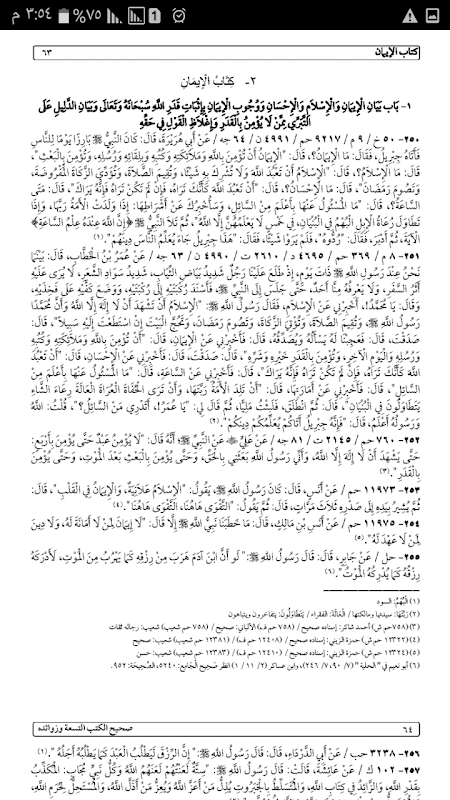 ٣:٥٤ م
٧٥%
كتاب الإيمان
٦٣
٢- كِتَابُ الْإِيمَانِ
١- بَاب بَيَانِ الْإِيمَانِ وَالْإِسْلَامِ وَالْإِحْسَانِ وَوُجُوبِ الْإِيمَانِ بِإِثْبَاتِ قَدَرِ اللَّهِ سُبْحَانَهُ وَتَعَالَى وَبَيَانِ الدَّلِيلِ عَلَى
التَّبَرِّي مِمَّنْ لَا يُؤْمِنُ بِالْقَدَرِ وَإِغْلَاظِ الْقَوْلِ فِي حَقِّهِ
٢٥٠- ٥٠ خ / ٩ م / ٩٢١٧ حم / ٤٩٩١ ن / ٦٤ جه / عَنْ أَبِي هُرَيْرَةَ، قَالَ: كَانَ النَّبِيُّ ﷺ بَارِزًا يَوْمًا لِلنَّاسِ
فَأَتَاهُ جِبْرِيلُ، فَقَالَ: مَا الْإِيمَانُ؟، قَالَ: "الْإِيمَانُ أَنْ تُؤْمِنَ بِاللَّهِ وَمَلَائِكَتِهِ وَكُتُبِهِ وَبِلِقَائِهِ وَرُسُلِهِ، وَتُؤْمِنَ بِالْبَعْثِ"،
قَالَ: مَا الْإِسْلَامُ؟، قَالَ: "الْإِسْلَامُ أَنْ تَعْبُدَ اللَّهَ وَلَا تُشْرِكَ بِهِ شَيْئًا، وَتُقِيمَ الصَّلَاةَ، وَتُؤَدِّيَ الزَّكَاةَ الْمَفْرُوضَةَ،
وَتَصُومَ رَمَضَانَ"، قَالَ: مَا الْإِحْسَانُ؟، قَالَ: "أَنْ تَعْبُدَ اللَّهَ كَأَنَّكَ تَرَاهُ، فَإِنْ لَمْ تَكُنْ تَرَاهُ فَإِنَّهُ يَرَاكَ"، قَالَ: مَتَى
السَّاعَةُ؟، قَالَ: "مَا الْمَسْئُولُ عَنْهَا بِأَعْلَمَ مِنْ السَّائِلِ، وَسَأُخْبِرُكَ عَنْ أَشْرَاطِهَا: إِذَا وَلَدَتْ الْأَمَةُ رَبَّهَا، وَإِذَا
تَطَاوَلَ رُعَاةُ الْإِبِلِ الْبُهْمُ فِي الْبُنْيَانِ، فِي خَمْسٍ لَا يَعْلَمُهُنَّ إِلَّا اللَّهُ"، ثُمَّ تَلَا النَّبِيُّ ﷺ ﴿إِنَّ اللَّهَ عِنْدَهُ عِلْمُ السَّاعَةِ﴾
الْآيَةَ، ثُمَّ أَدْبَرَ، فَقَالَ: "رُدُّوهُ"، فَلَمْ يَرَوْا شَيْئًا، فَقَالَ: "هَذَا جِبْرِيلُ جَاءَ يُعَلِّمُ النَّاسَ دِينَهُمْ".(١)
٢٥١- ٨ م / ٣٦٩ حم / ٤٦٩٥ د / ٢٦١٠ ت / ٤٩٩٠ ن / ٦٣ جه / عَنْ عُمَرُ بْنُ الْخَطَّابِ، قَالَ: بَيْنَمَا
نَحْنُ عِنْدَ رَسُولِ اللَّهِ ﷺ ذَاتَ يَوْمٍ، إِذْ طَلَعَ عَلَيْنَا رَجُلٌ شَدِيدُ بَيَاضِ الثِّيَابِ، شَدِيدُ سَوَادِ الشَّعَرِ، لَا يُرَى عَلَيْهِ
أَثَرُ السَّفَرِ، وَلَا يَعْرِفُهُ مِنَّا أَحَدٌ، حَتَّى جَلَسَ إِلَى النَّبِيِّ ﷺ، فَأَسْنَدَ رُكْبَتَيْهِ إِلَى رُكْبَتَيْهِ، وَوَضَعَ كَفَّيْهِ عَلَى فَخِذَيْهِ،
وَقَالَ: يَا مُحَمَّدُ!، أَخْبِرْنِي عَنْ الْإِسْلَامِ، فَقَالَ رَسُولُ اللَّهِ ﷺ: "الْإِسْلَامُ أَنْ تَشْهَدَ أَنْ لَا إِلَهَ إِلَّا اللَّهُ وَأَنَّ مُحَمَّدًا
رَسُولُ اللَّهِ ﷺ، وَتُقِيمَ الصَّلَاةَ، وَتُؤْتِيَ الزَّكَاةَ، وَتَصُومَ رَمَضَانَ، وَتَحُجَّ الْبَيْتَ إِنْ اسْتَطَعْتَ إِلَيْهِ سَبِيلًا"، قَالَ:
صَدَقْتَ، قَالَ: فَعَجِبْنَا لَهُ يَسْأَلُهُ وَيُصَدِّقُهُ، قَالَ: فَأَخْبِرْنِي عَنْ الْإِيمَانِ، قَالَ: "أَنْ تُؤْمِنَ بِاللَّهِ وَمَلَائِكَتِهِ وَكُتُبِهِ
وَرُسُلِهِ وَالْيَوْمِ الْآخِرِ، وَتُؤْمِنَ بِالْقَدَرِ خَيْرِهِ وَشَرِّهِ"، قَالَ: صَدَقْتَ، قَالَ: فَأَخْبِرْنِي عَنْ الْإِحْسَانِ، قَالَ: "أَنْ تَعْبُدَ
اللَّهَ كَأَنَّكَ تَرَاهُ، فَإِنْ لَمْ تَكُنْ تَرَاهُ فَإِنَّهُ يَرَاكَ"، قَالَ: فَأَخْبِرْنِي عَنْ السَّاعَةِ، قَالَ: "مَا الْمَسْئُولُ عَنْهَا بِأَعْلَمَ مِنْ
السَّائِلِ"، قَالَ: فَأَخْبِرْنِي عَنْ أَمَارَتِهَا، قَالَ: "أَنْ تَلِدَ الْأَمَةُ رَبَّتَهَا، وَأَنْ تَرَى الْحُفَاةَ الْعُرَاةَ الْعَالَةَ رِعَاءَ الشَّاءِ
يَتَطَاوَلُونَ فِي الْبُنْيَانِ"، قَالَ: ثُمَّ انْطَلَقَ، فَلَبِثْتُ مَلِيًّا، ثُمَّ قَالَ لِي: "يَا عُمَرُ!، أَتَدْرِي مَنْ السَّائِلُ؟"، قُلْتُ: اللَّهُ
وَرَسُولُهُ أَعْلَمُ، قَالَ: "فَإِنَّهُ جِبْرِيلُ أَتَاكُمْ يُعَلِّمُكُمْ دِينَكُمْ".(٢)
٢٥٢- ٧٦٠ حم / ٢١٤٥ ت / ٨١ جه / عَنْ عَلِيٍّ، عَنْ النَّبِيِّ ﷺ؛ أَنَّهُ قَالَ: "لَا يُؤْمِنُ عَبْدٌ حَتَّى يُؤْمِنَ بِأَرْبَعٍ:
حَتَّى يَشْهَدَ أَنْ لَا إِلَهَ إِلَّا اللَّهُ، وَأَنِّي رَسُولُ اللَّهِ بَعَثَنِي بِالْحَقِّ، وَحَتَّى يُؤْمِنَ بِالْبَعْثِ بَعْدَ الْمَوْتِ، وَحَتَّى يُؤْمِنَ
بِالْقَدَرِ".(٣)
٢٥٣- ١١٩٧٣ حم / عَنْ أَنَسٍ، قَالَ: كَانَ رَسُولُ اللَّهِ ﷺ، يَقُولُ: "الْإِسْلَامُ عَلَانِيَةٌ، وَالْإِيمَانُ فِي الْقَلْبِ"، قَالَ:
ثُمَّ يُشِيرُ بِيَدِهِ إِلَى صَدْرِهِ ثَلَاثَ مَرَّاتٍ، قَالَ: ثُمَّ يَقُولُ: "التَّقْوَى هَاهُنَا، التَّقْوَى هَاهُنَا".(٤)
٢٥٤- ١١٩٧٥ حم / عَنْ أَنَسِ بْنِ مَالِكٍ، قَالَ: مَا خَطَبَنَا نَبِيُّ اللَّهِ ﷺ إِلَّا قَالَ: "لَا إِيمَانَ لِمَنْ لَا أَمَانَةَ لَهُ، وَلَا دِينَ
لِمَنْ لَا عَهْدَ لَهُ".(٥)
٢٥٥- حل / عَنْ جَابِرٍ، قَالَ: قَالَ رَسُولُ اللَّهِ ﷺ: "لَو أَنَّ ابْنَ آدَمَ هَرَبَ مِنْ رِزْقِهِ كَمَا يَهْرُبُ مِنَ الْمَوْتِ، لَأَدْرَكَهُ
رِزْقُهُ كَمَا يُدْرِكُهُ الْمَوْتُ".(٦)
(١) الْبُهْمُ: السود
(٢) رَبَّتَهَا: سيدتها ومالكتها / الْعَالَةَ: الفقراء / يَتَطَاوَلُونَ: يتفاخرون ويتباهون
(٣) (٧٥٨ حم ش) أحمد شاكر: إسناده صحيح / (٧٥٨ حم ف) الألباني: صحيح / (٧٥٨ حم شعيب) شعيب: رجاله ثقات
(٤) (١٢٣٢٢ حم ش) حمزة الزيني: إسناده صحيح / (١٢٤٠٨ حم ف) / (١٢٣٨١ حم شعيب) شعيب: صحيح
(٥) (١٢٣٢٤ حم ش) حمزة الزيني: إسناده صحيح / (١٢٤١٠ حم ف) / (١٢٣٨٣ حم شعيب) شعيب: حسن
(٦) أبو نعيم في "الحلية" (٧/ ٩٠، ٧/ ٢٤٦)، وابن عساكر (٢/ ١١/ ١) انظر صَحِيح الْجَامِع: ٥٢٤٠، الصَّحِيحَة: ٩٥٢.
صحيح الكتب التسعة وزوائده
٦٤
٢٥٦- ٣٢٣٨ حب / عَنْ أَبِي الدَّرْدَاءِ، قَالَ: قَالَ رَسُولُ اللَّهِ ﷺ: "إِنَّ الرِّزْقَ لَيَطْلُبُ الْعَبْدَ كَمَا يَطْلُبُهُ أَجَلُهُ".(١)
٢٥٧- ١٠٢ ك / عَنْ عَائِشَةَ، قَالَتْ: قَالَ رَسُولُ اللَّهِ ﷺ: "سِتَّةٌ لَعَنْتُهُمْ لَعَنَهُمُ اللَّهُ وَكُلُّ نَبِيٍّ مُجَابٍ: الْمُكَذِّبُ
بِقَدَرِ اللَّهِ، وَالزَّائِدُ فِي كِتَابِ اللَّهِ، وَالْمُتَسَلِّطُ بِالْجَبَرُوتِ يُذِلُّ مَنْ أَعَزَّ اللَّهُ وَيُعِزُّ مَنْ أَذَلَّ اللَّهُ، وَالْمُسْتَحِلُّ لِحَرَمِ اللَّهِ،